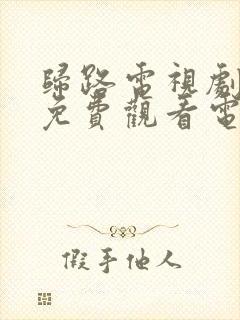 歸路電視劇
免費觀看電
假手他人